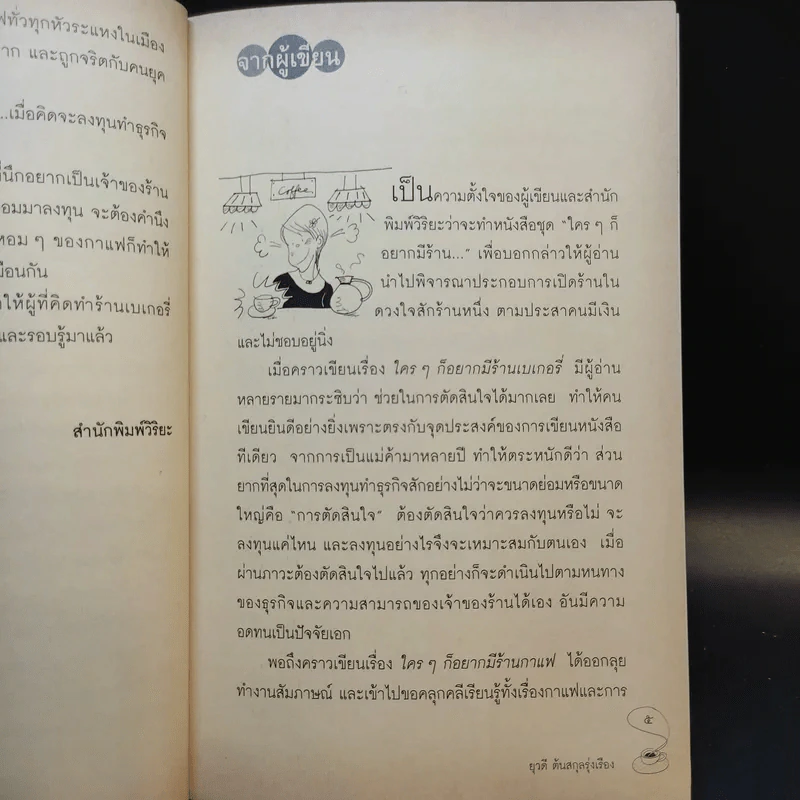 ฟทั่วทุกหัวระแหงในเมือง
ทาก และถูกจริตกับคนยุค
...เมื่อคิดจะลงทุนทำธุรกิจ
นึกอยากเป็นเจ้าของร้าน
มาลงทุน จะต้องคำนึง
หอม ๆ ของกาแฟก็ทำให้
มือนกัน
ให้ผู้ที่คิดทำร้านเบเกอรี่
และรอบรู้มาแล้ว
สำนักพิมพ์วิริยะ
จากผู้เขียน
Coffee
เป็นความตั้งใจของผู้เขียนและสำนัก
พิมพ์วิริยะว่าจะทำหนังสือชุด "ใคร ๆ ก็
อยากมีร้าน..." เพื่อบอกกล่าวให้ผู้อ่าน
นำไปพิจารณาประกอบการเปิดร้านใน
ดวงใจสักร้านหนึ่ง ตามประสาคนมีเงิน
และไม่ชอบอยู่นิ่ง
เมื่อคราวเขียนเรื่อง ใคร ๆ ก็อยากมีร้านเบเกอรี่ มีผู้อ่าน
หลายรายมากระซิบว่า ช่วยในการตัดสินใจได้มากเลย ทำให้คน
เขียนยินดีอย่างยิ่งเพราะตรงกับจุดประสงค์ของการเขียนหนังสือ
ทีเดียว จากการเป็นแม่ค้ามาหลายปี ทำให้ตระหนักดีว่า ส่วน
ยากที่สุดในการลงทุนทำธุรกิจสักอย่างไม่ว่าจะขนาดย่อมหรือขนาด
ใหญ่คือ "การตัดสินใจ" ต้องตัดสินใจว่าควรลงทุนหรือไม่ จะ
ลงทุนแค่ไหน และลงทุนอย่างไรจึงจะเหมาะสมกับตนเอง เมื่อ
ผ่านภาวะต้องตัดสินใจไปแล้ว ทุกอย่างก็จะดำเนินไปตามหนทาง
ของธุรกิจและความสามารถของเจ้าของร้านได้เอง อันมีความ
อดทนเป็นปัจจัยเอก
พอถึงคราวเขียนเรื่อง ใคร ๆ ก็อยากมีร้านกาแฟ ได้ออกลุย
ทำงานสัมภาษณ์ และเข้าไปขอคลุกคลีเรียนรู้ทั้งเรื่องกาแฟและการ
๕
ยุวดี ตันสกุลรุ่งเรือง